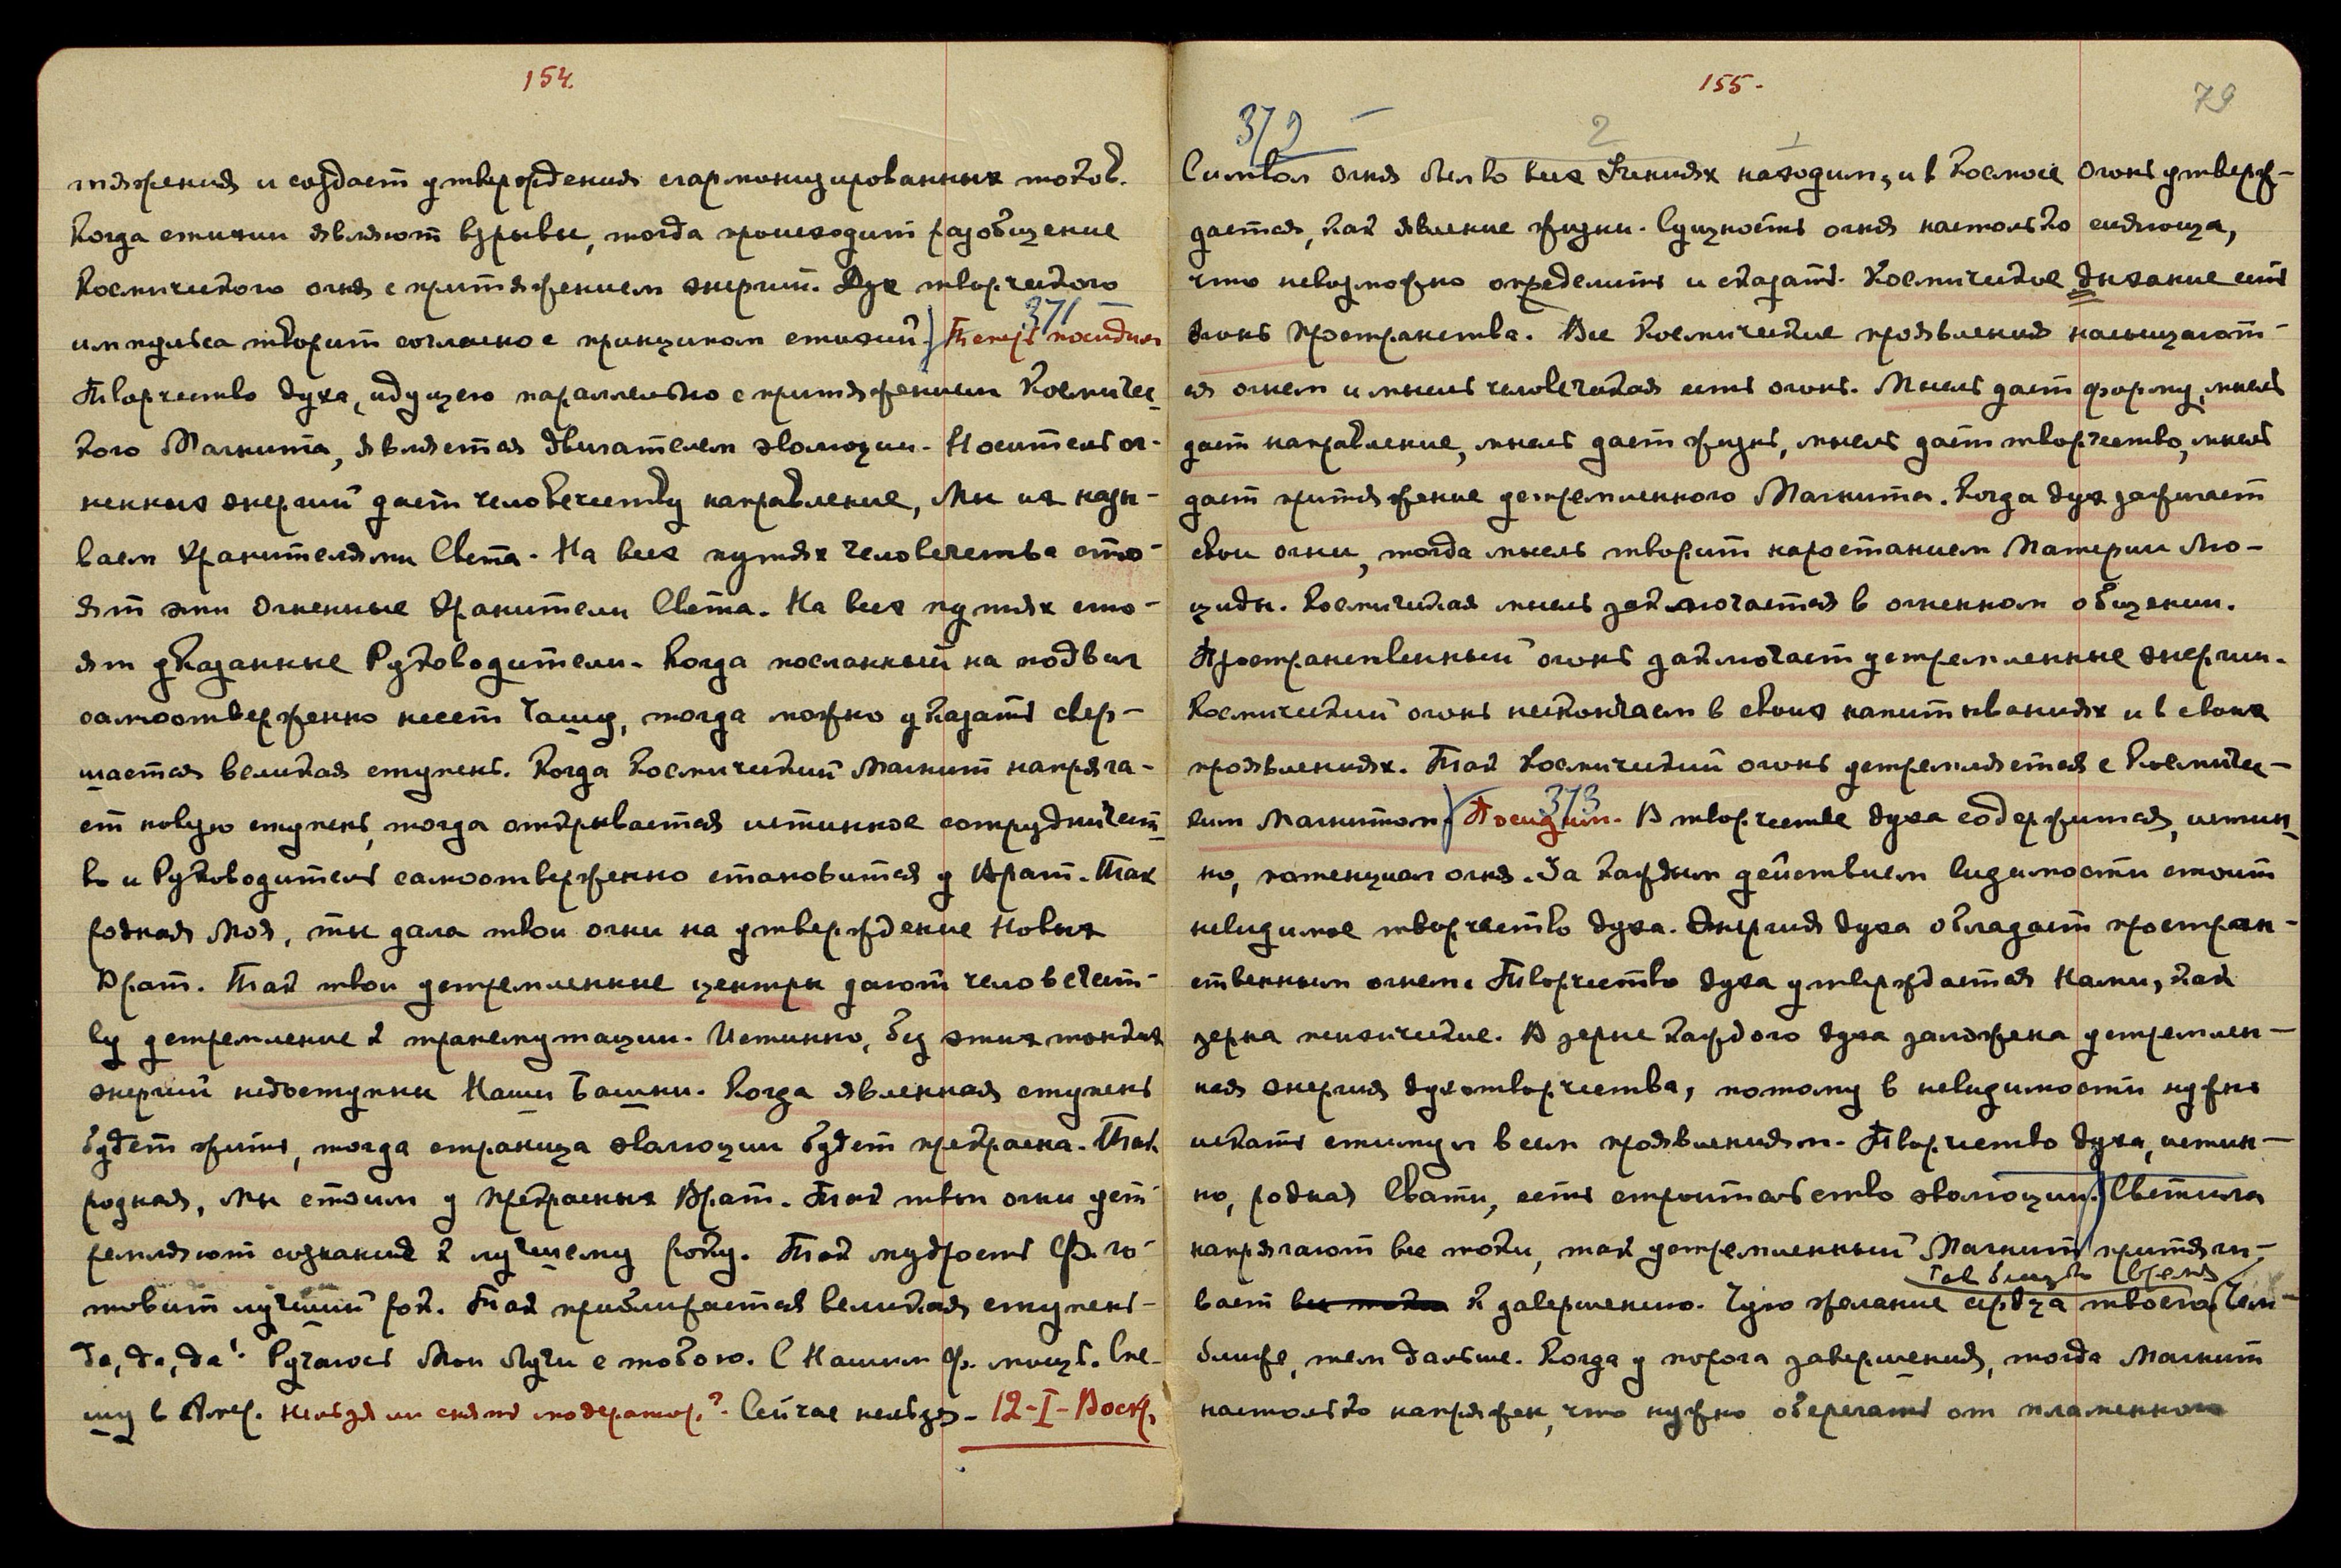 154.
тяжения и создает утверждения сгармонизированных токов.
Когда стихии являют взрывы, тогда происходит разобщение
космического огня с притяжением энергий. Дух творческого
импульса творит согласно с принципом стихий.) 371 Теперь посидим
Творчество духа, идущего параллельно с притяжением Космичес-
кого Магнита, является двигателем эволюции. Носитель ог-
ненных энергий дает человечеству направление, Мы их назы-
ваем Хранителями Света. На всех путях человечества сто-
ят эти Огненные Хранители Света. На всех путях сто-
ят указанные Руководители. Когда посланный на подвиг
самоотверженно несет Чашу, тогда можно указать свер-
шается великая ступень. Когда Космический Магнит напряга-
ет новую ступень, тогда открывается истинное сотрудничест-
во и Руководитель самоотверженно становится у Врат. Так
родная Моя, ты дала твои огни на утверждение Новых
Врат. Так твои устремленные центры дают человечест-
ву устремление к трансмутации. Истинно, без этих тонких
энергий недоступны Наши Башни. Когда явленная ступень
будет жить, тогда страница эволюции будет прекрасна. Так
родная, Мы стоим у Прекрасных Врат. Так твои огни уст-
ремляют сознание к лучшему року. Так мудрость Ф. го-
товит лучший рок. Так приближается великая ступень -
Да, да, да! Ручаюсь Мои Лучи с тобою. С Нашим Ф. мощь. Спе-
шу в Амер. Нельзя ли снять модератор.? Сейчас нельзя - 12-I-Воскр.
155.
79
372
2 1
Символ огня был во всех Учениях находим, и в Космосе Огонь утверж-
дается, как явление жизни. Сущность огня настолько сияюща,
что невозможно определить и сказать. Космическое дыхание есть
огонь Пространства. Все Космические проявления насыщают-
ся огнем и мысль человеческая есть огонь. Мысль дает форму, мысль
дает направление, мысль дает жизнь, мысль дает творчество, мысль
дает притяжение устремленного Магнита. Когда дух зажигает
свои огни, тогда мысль творит нарастанием Материи Лю-
циды. Космическая мысль заключается в огненном общении.
Пространственный огонь заключает устремленные энергии.
Космический огонь нескончаем в своих напитываниях и в своих
проявлениях. Так Космический огонь устремляется с Космичес-
ким Магнитом.) 373 Посидим. В творчестве духа содержится, истин-
но, потенциал огня. За каждым действием видимости стоит
невидимое творчество духа. Энергия духа обладает простран-
ственным огнем. Творчество духа утверждается Нами, как
зерна психические. В зерне каждого духа заложена устремлен-
ная энергия духотворчества, потому в невидимости нужно
искать стимул всем проявлениям. Творчество духа, истин-
но, родная Свати, есть строительство эволюции.) Светила
напрягают все токи, так устремленный Магнит притяги-
вает все токи к завершению. Чую желание сердца твоего Чем
близко время
ближе, тем дальше. Когда у порога завершения, тогда Магнит
настолько напряжен, что нужно оберегать от пламенного